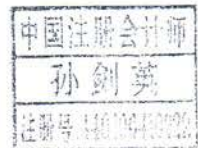 中国注册会计师
孙剑英
注册号